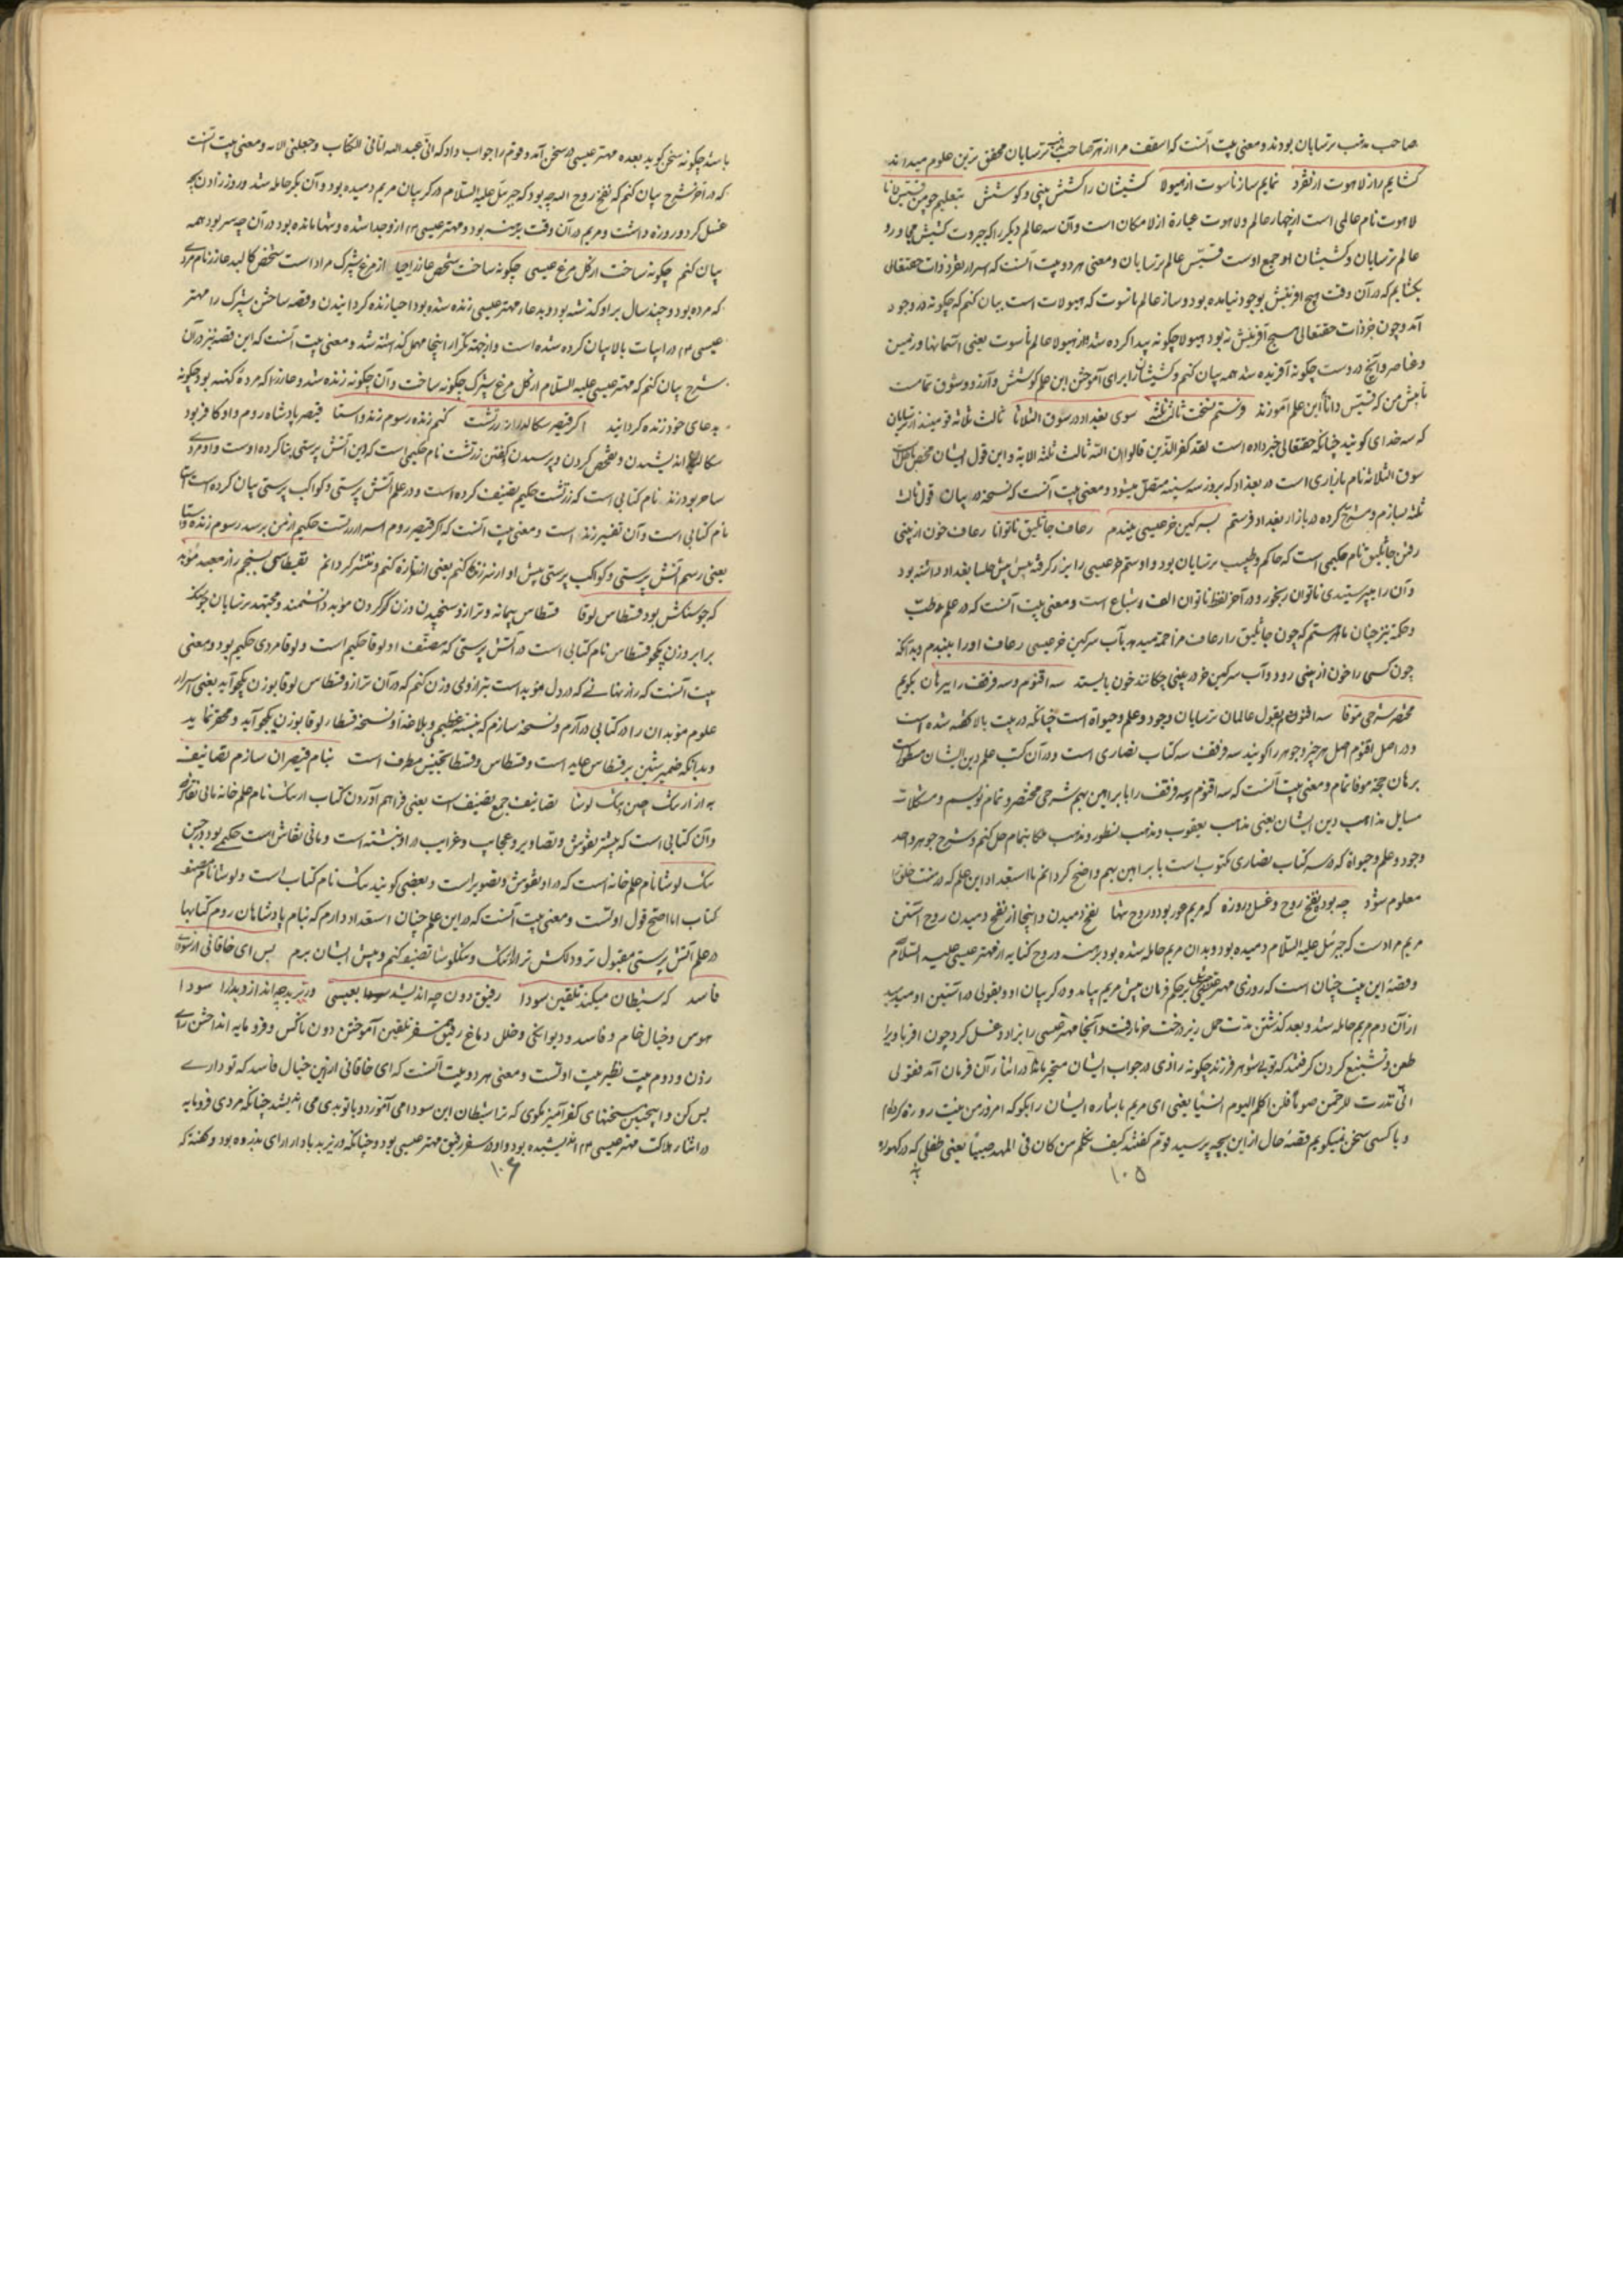 صاحب مذهب ترسایان بودند و معنی بیت آنست که اسقف مرا از هر صاحب مذهب ترسایان محقق ترین علوم میداند
گشایم راز لاهوت از تفرد نمایم ساز ناسوت از هیولا کشیشان را کشش بینی و کوشش بتعلیم چو من قسیس دانا
لاهوت نام عالمی است از چهار عالم و لاهوت عبارة از لامکان است و آن سه عالم دیگر را که جبروت
عالم ترسایان و کشیشان او جمع اوست قسیس عالم ترسایان و معنی هر دو بیت آنست که اسرار تفرد ذات حقتعالی
بگشایم که در آن وقت هیچ آفرینش بوجود نیامده بود و ساز عالم ناسوت که هیولات است بیان کنم که چگونه در وجود
آمد و چون جز ذات حقتعالی هیچ آفرینش نه بود هیولا چگونه پیدا کرده شد و از هیولا عالم ناسوت یعنی آسمانها و زمین
و عناصر و آنچ دروست چگونه آفریده شد همه بیان کنم و کشیشان را برای آموختن این علم کوشش و آرزو و شوق تمامست
تا پیش من که قسیس دانا ام این علم آموزند فرستم نسخت ثالث ثلثه سوی بغداد در سوق الثلاثا ثالث ثلاثه قومیند از ترسایان
که سه خدای گویند چنانکه حقتعالی خبر داده است لقد کفر الذین قالوا ان الله ثالث ثلثة الایة و این قول ایشان محض باطل
سوق الثلاثه نام بازاری است در بغداد که بروز سه شنبه متصل میشود و معنی بیت آنست که نسخه در بیان قول ثالث
ثلثه بسازم و شرح کرده در بازار بغداد فرستم بسرگین خر عیسی ببندم رعاف جاثلیق ناتوانا رعاف خون از بینی
رفتن جاثلیق نام حکیمی است که حاکم و طبیب ترسایان بود و او ستم خر عیسی را بزر گرفته پیش کلیسا بغداد داشته بود
و آن را بپرستیدی ناتوان رنجور و در آخر لفظ ناتوان الف اشباع است و معنی بیت آنست که در علم طب
و حکمة نیز چنان ماهرستم که چون جاثلیق را رعاف مزاحمة میدهد بآب سرگین خر عیسی رعاف او را ببندم و بدانکه
چون کسی را خون از بینی رود و آب سرگین خر در بینی چکانند خون بایستد سه اقنوم و سه قرقف را ببرهان بگویم
مختصر شرحی موفا سه اقنوم بقول عالمان ترسایان وجود و علم و حیوة است چنانکه در بیت بالا گفته شده است
و در اصل اقنوم اصل هر چیز و جوهر را گویند سه قرقف سه کتاب نصاری است و در آن کتب علم دین ایشان مسطور است
برهان حجة موفا تمام و معنی بیت آنست که سه اقنوم و سه قرقف را با براهین بهم شرحی مختصر و تمام نویسم و مشکلات
مسایل مذاهب دین ایشان یعنی مذهب یعقوب و مذهب نسطور و مذهب ملکا بتمام حل کنم و شرح جوهر واحد
وجود و علم و حیوة که در سه کتاب نصاری مکتوب است با براهین بهم واضح گردانم تا استعداد این علم که در منست خلق را
معلوم شود چه بود نفخ روح و غسل و روزه که مریم عور بود و روح تنها نفخ دمیدن و اینجا از نفخ دمیدن روح آستین
مریم مرادست که جبرئیل علیه السلام دمیده بود و بدان مریم حامله شده بود برهنه و روح کنایه از مهتر عیسی علیه السلام
و قصه این بیت چنان است که روزی مهتر جبرئیل بحکم فرمان پیش مریم بیامد و در گریبان او و بقولی در آستین او میدمید
از آن دم مریم حامله شد و بعد گذشتن مدت حمل زیر درخت خرما رفت و آنجا مهتر عیسی را بزاد و غسل کرد چون اقربا ویرا
طعن و تشنیع کردن گرفتند که تو بی شوهر فرزند چگونه زادی در جواب ایشان متحیر ماند در اثنا آن فرمان آمد فقولی
انی نذرت للرحمن صوما فلن اکلم الیوم انسیا یعنی ای مریم باشاره ایشان را بگو که امروز من نیت روزه کرده ام
و با کسی سخن نمیگویم قصه حال از این بچه پرسید قوم گفتند کیف نکلم من کان فی المهد صبیا یعنی طفلی که در گهواره
۱۰۵
باشد چگونه سخن گوید بعده مهتر عیسی در سخن آمد و قوم را جواب داد که انی عبد الله اتانی الکتاب و جعلنی الایه و معنی بیت آنست
که در آخر شرح بیان کنم که نفخ روح الله چه بود که جبرئیل علیه السلام در گریبان مریم دمیده بود و آن بکر حامله شد و روز زادن بچه
غسل کرد و روزه داشت و مریم در آن وقت برهنه بود و مهتر عیسی ۴ از و جدا شده و تنها مانده بود در آن چه سر بود همه
بیان کنم چگونه ساخت از گل مرغ عیسی چگونه ساخت شخص عازر احیا از مرغ شپرک مراد است شخص کالبد عازر نام مردی
که مرده بود و چند سال بر او گذشته بود و بدعاء مهتر عیسی زنده شده بود احیا زنده گردانیدن و قصه ساختن شپرک را مهتر
عیسی ۴ در ابیات بالا بیان کرده شده است و از جهة تکرار اینجا مهمل گذاشته شد و معنی بیت آنست که این قصه نیز در آن
شرح بیان کنم که مهتر عیسی علیه السلام از گل مرغ شپرک چگونه ساخت و آن چگونه زنده شد و عازر را که مرده کهنه بود چگونه
بدعای خود زنده گردانید اگر قیصر سگالد راز زرتشت کنم زنده رسوم زند و استا قیصر پادشاه روم و او کافر بود
سگالد اندیشیدن و تفحص کردن و پرسیدن گفتن زرتشت نام حکیمی است که این آتش پرستی بنا کرده اوست و او مردی
ساحر بود زند نام کتابی است که زرتشت حکیم تصنیف کرده است و در علم آتش پرستی و کواکب پرستی بیان کرده است استا
نام کتابی است و آن تفسیر زند است و معنی بیت آنست که اگر قیصر روم اسرار زرتشت حکیم از من برسد رسوم زند و استا
یعنی رسم آتش پرستی و کواکب پرستی پیش او از سر زنده کنم یعنی تازه کنم و منتشر گردانم بقسطاسی بسنجم راز معبد موبد
که جو سنگش بود قسطاس لوقا قسطاس پیمانه و ترازو سنجیدن وزن کردن موبد دانشمند و مجتهد ترسایان جو سنگ
برابر وزن یکجو قسطاس نام کتابی است در آتش پرستی که مصنف او لوقا حکیم است و لوقا مردی حکیم بود و معنی
بیت آنست که راز نهانی که در دل موبد است بترازوی وزن کنم که در آن ترازو قسطاس لوقا بوزن یکجو آید یعنی اسرار
علوم موبدان را در کتابی درآرم و نسخه سازم که بنسبة عظیمی و بلاغة او نسخه قسطاس لوقا بوزن یکجو آید و محقر نماید
و بدانکه ضمیر شین بر قسطاس عاید است و قسطاس و قسطا تجنیس مطرف است بنام قیصران سازم تصانیف
به از ارتنگ چین و تنگ لوشا تصانیف جمع تصنیف است یعنی فراهم آوردن کتاب ارتنگ نام علم خانه مانی نقاش
و آن کتابی است که بیشتر نقوش و تصاویر و عجایب و غرایب در او نبشته است و مانی نقاش است حکیمی بود در چین
تنگ لوشا نام علم خانه است که در او نقوش و تصویر است و بعضی گویند تنگ نام کتاب است و لوشا نام مصنف
کتاب اما اصح قول اولست و معنی بیت آنست که در این علم چنان استعداد دارم که بنام پادشاهان روم کتابها
در علم آتش پرستی مقبول تر و دلکش تر از ارتنگ و تنگلوشا تصنیف کنم و پیش ایشان برم بس ای خاقانی از سودای
فاسد که شیطان میکند تلقین سودا رفیق دون چه اندیشد بعیسی وزیر بد چه اندازد بدارا سودا
هوس و خیال خام و فاسد و دیوانگی و خلل دماغ رفیق همسفر تلقین آموختن دون ناکس و فرومایه انداختن رای
زدن و دوم بیت نظیر بیت اولست و معنی هر دو بیت آنست که ای خاقانی از این خیال فاسد که تو داری
بس کن و اینچنین سخنهای کفرآمیز مگوی که ترا شیطان این سودا می آموزد و با تو بدی می اندیشد چنانکه مردی فرومایه
در اثنا هلاکت مهتر عیسی ۴ اندیشیده بود و او در سفر رفیق مهتر عیسی بود و چنانکه وزیر بد با دارا رای بد زده بود و گفته که
۱۰۶